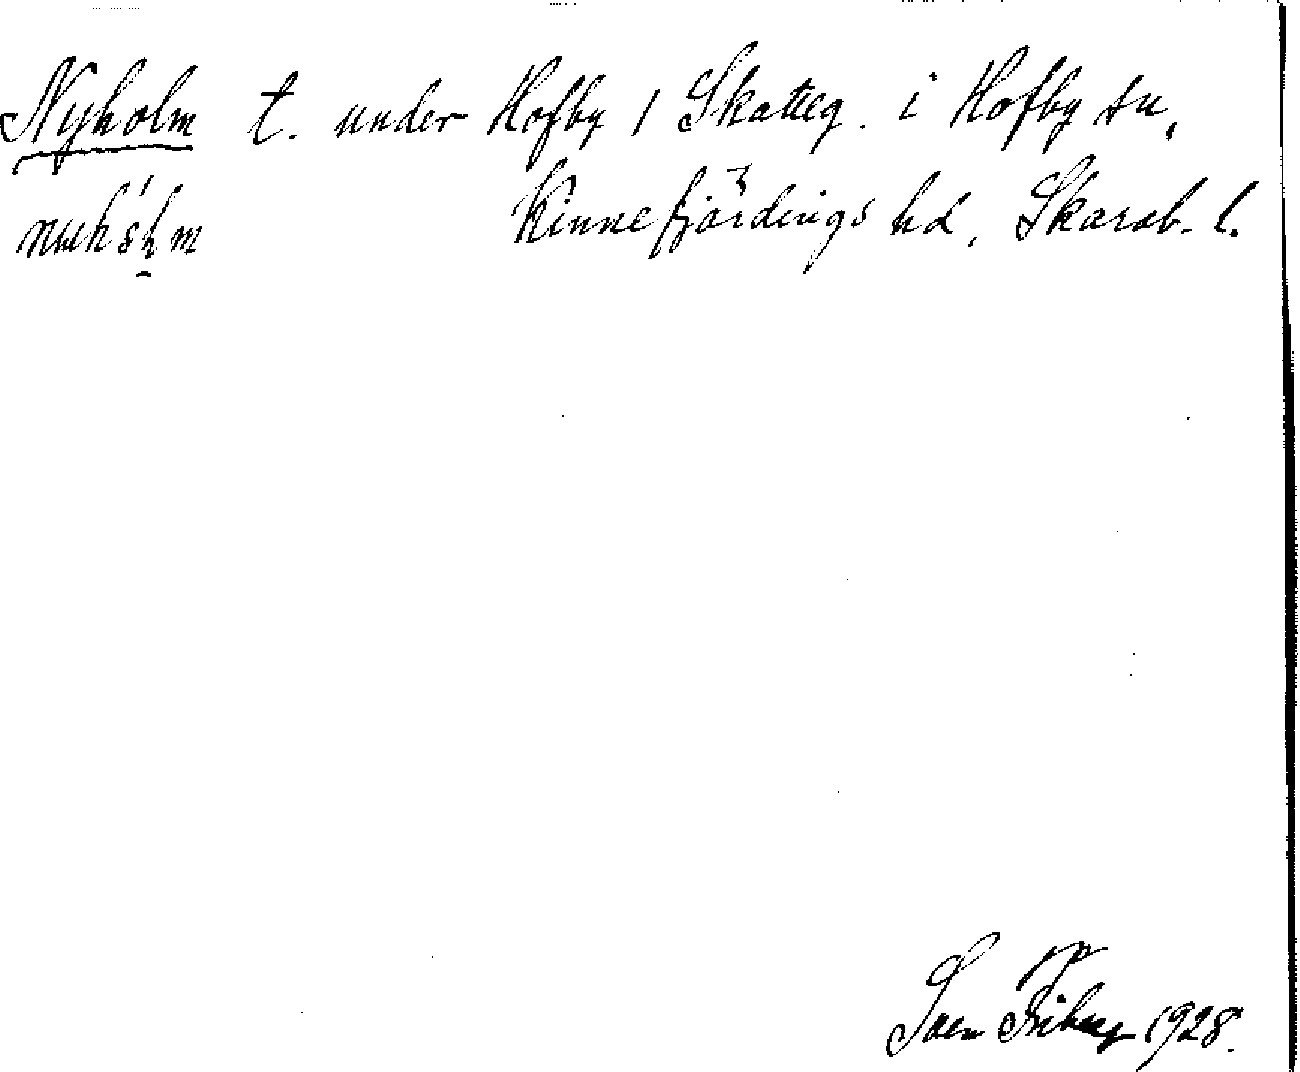 Nyholm t. under Hofby 1 Skatteg. i Hofby sn,
Kinnefjärdings hd, Skarab. l.
Sven Friberg 1928.